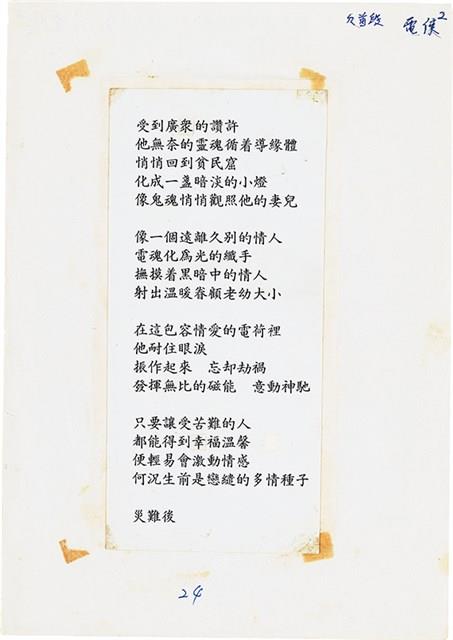 欠首段 電侯2
受到廣衆的讚許
他無奈的靈魂循着導緣體
悄悄回到貧民窟
化成一盞暗淡的小燈
像鬼魂悄悄觀照他的妻兒
像一個遠離久別的情人
電魂化爲光的纖手
撫摸着黑暗中的情人
射出溫暖眷顧老幼大小
在這包容情愛的電荷裡
他耐住眼淚
振作起來　忘却劫禍
發揮無比的磁能　意動神馳
只要讓受苦難的人
都能得到幸福溫馨
便輕易會激動情感
何況生前是戀縫的多情種子
災難後
24